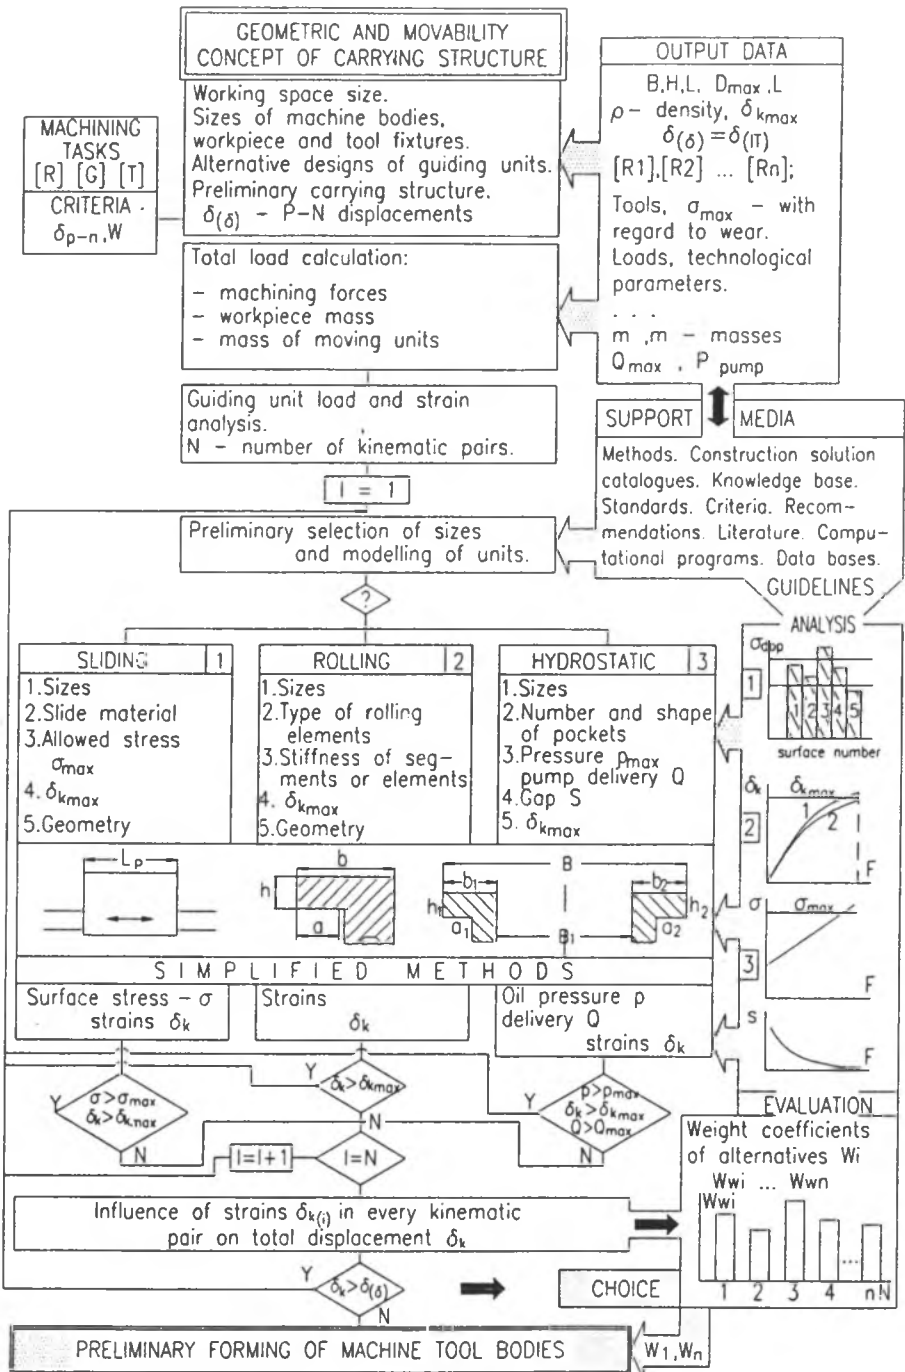 GEOMETRIC AND MOVABILITY
CONCEPT OF CARRYING STRUCTURE
Working space size.
Sizes of machine bodies,
workpiece and tool fixtures.
Alternative designs of guiding units.
Preliminary carrying structure.
δ(δ) – P–N displacements
MACHINING
TASKS
[R] [G] [T]
CRITERIA
δp–n,W
OUTPUT DATA
B,H,L, Dmax,L
ρ– density, δkmax
δ(δ)=δ(IT)
[R1],[R2] ... [Rn];
Tools, σmax – with
regard to wear.
Loads, technological
parameters.
. . .
m ,m – masses
Qmax , P pump
Total load calculation:
– machining forces
– workpiece mass
– mass of moving units
Guiding unit load and strain
analysis.
N – number of kinematic pairs.
I = 1
SUPPORT MEDIA
Methods. Construction solution
catalogues. Knowledge base.
Standards. Criteria. Recom-
mendations. Literature. Compu-
tational programs. Data bases.
GUIDELINES
Preliminary selection of sizes
and modelling of units.
?
SLIDING 1
1.Sizes
2.Slide material
3.Allowed stress
σmax
4. δkmax
5.Geometry
ROLLING 2
1.Sizes
2.Type of rolling
elements
3.Stiffness of seg-
ments or elements
4. δkmax
5.Geometry
HYDROSTATIC 3
1.Sizes
2.Number and shape
of pockets
3.Pressure pmax
pump delivery Q
4.Gap S
5. δkmax
ANALYSIS
σdop
1
1 2 3 4 5
surface number
δk δkmax
1 2
2
F
σ σmax
3
F
S
F
Lp
b
h
a
B
b1 b2
h1 h2
a1 a2
B1
SIMPLIFIED METHODS
Surface stress – σ
strains δk
Strains
δk
Oil pressure p
delivery Q
strains δk
Y
σ>σmax
δk>δkmax
N
Y
δk>δkmax
N
Y
p>pmax
δk>δkmax
Q>Qmax
N
I=I+1
I=N
Influence of strains δk(i) in every kinematic
pair on total displacement δk
Y
δk>δ(δ)
N
EVALUATION
Weight coefficients
of alternatives Wi
Wwi ... Wwn
Wwi
1 2 3 4 ... n N
CHOICE
W1,Wn
PRELIMINARY FORMING OF MACHINE TOOL BODIES